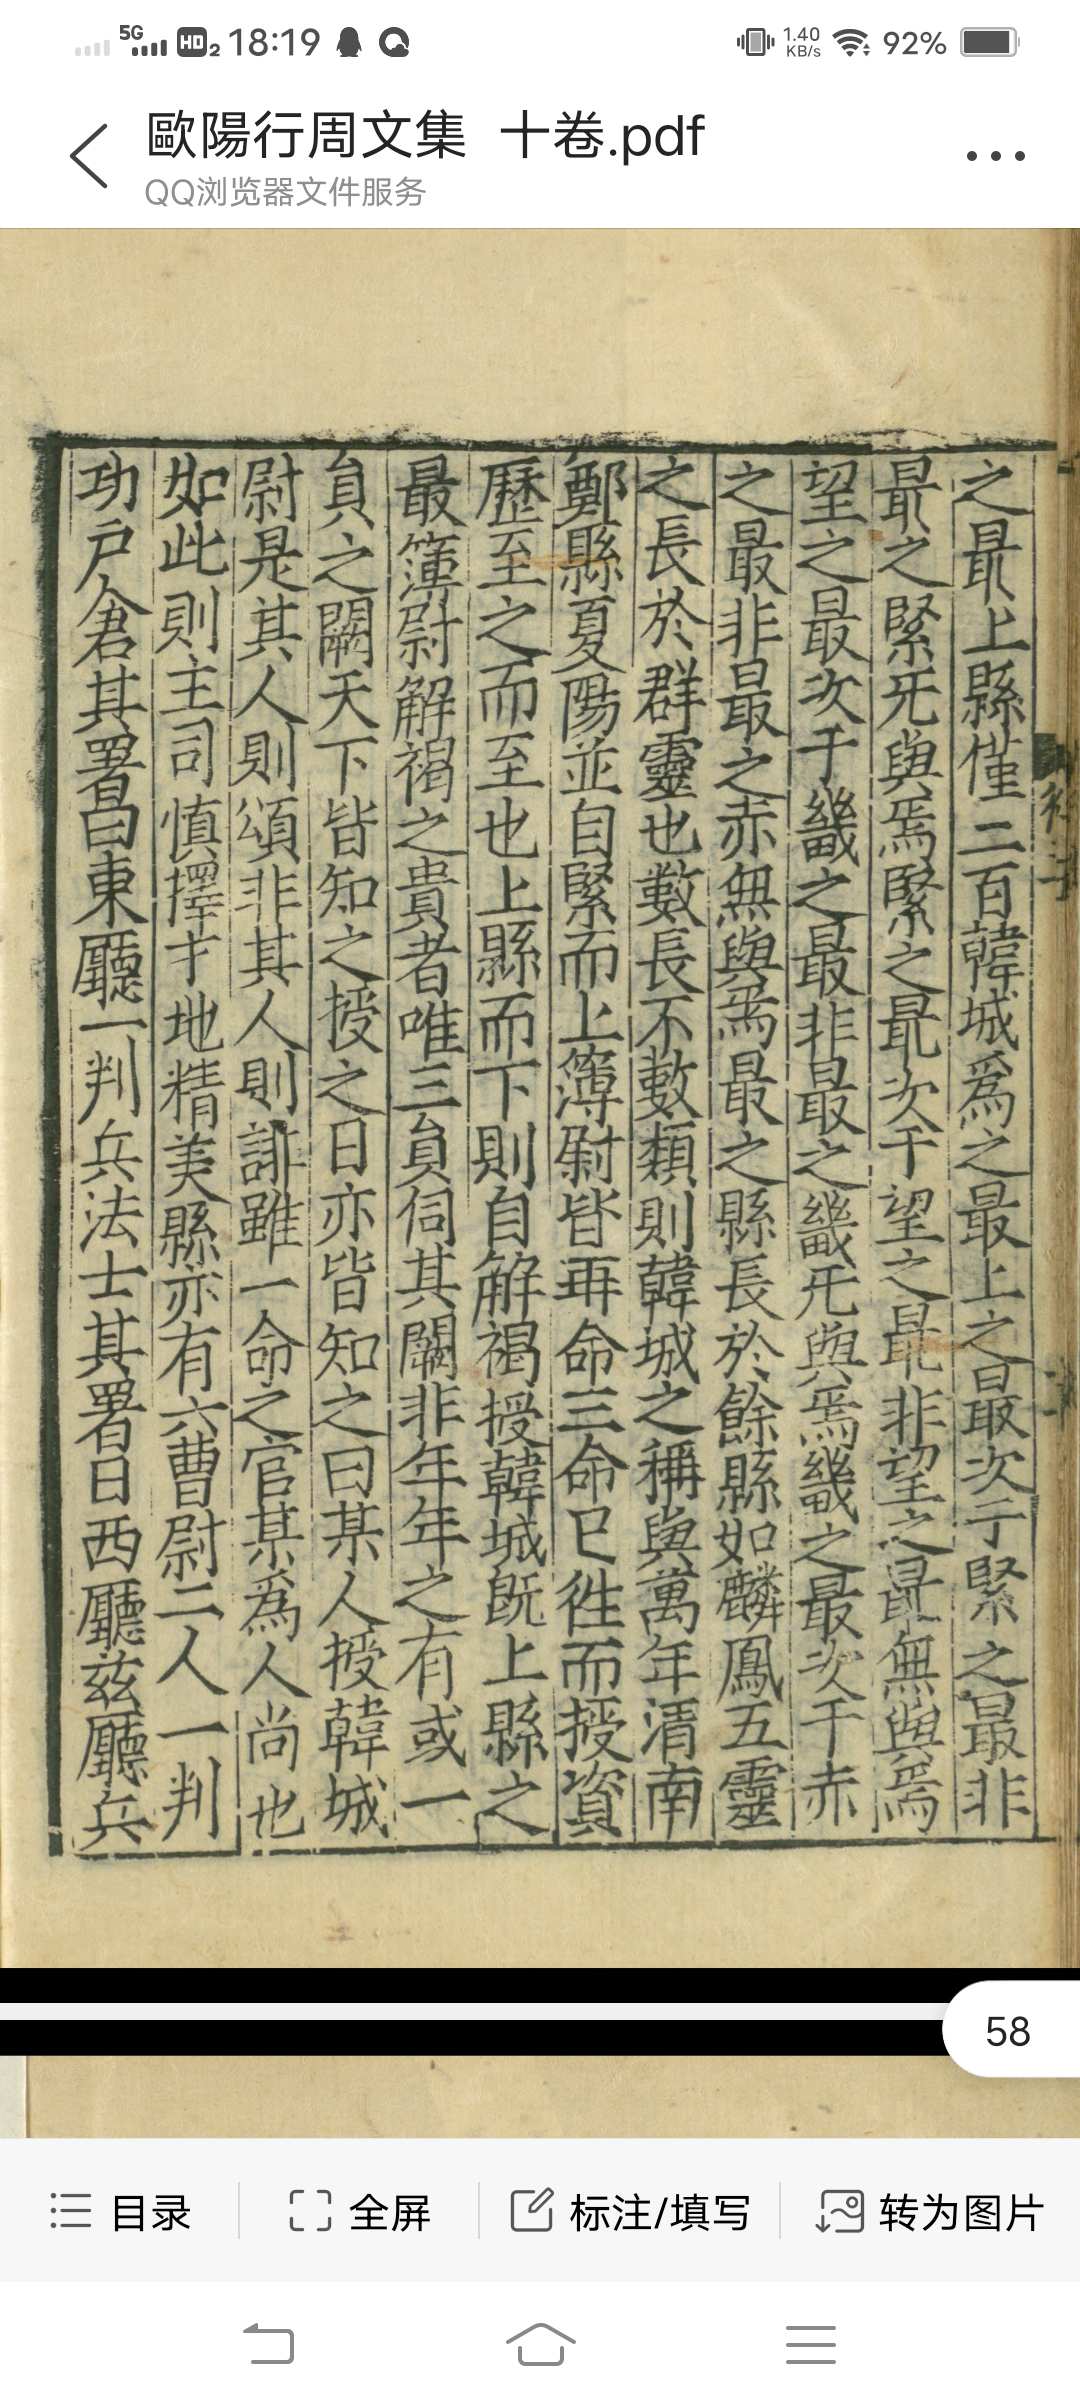 5G HD 2 18:19 1.40 KB/s 92%
歐陽行周文集 十卷.pdf
QQ浏览器文件服务
之最上縣僅二百韓城爲之最上之最次于緊之最非
最之緊旡與焉緊之最次于望之最非望之最無與焉
望之最次于畿之最非最之畿旡與焉畿之最次于赤
之最非最之赤無與焉最之縣長於餘縣如麟鳳五靈
之長於群靈也數長不數類則韓城之稱與萬年清南
鄭縣夏陽並自緊而上簿尉皆再命三命已徃而授資
歷至之而至也上縣而下則自解褐授韓城旣上縣之
最簿尉解褐之貴者唯三貟伺其闕非年年之有或一
貟之闕天下皆知之授之日亦皆知之曰某人授韓城
尉是其人則頌非其人則誹雖一命之官其爲人尚也
如此則主司慎擇才地精美縣亦有六曹尉二人一判
功戶倉其署曰東廳一判兵法士其署曰西廳兹廳兵
58
目录 全屏 标注/填写 转为图片